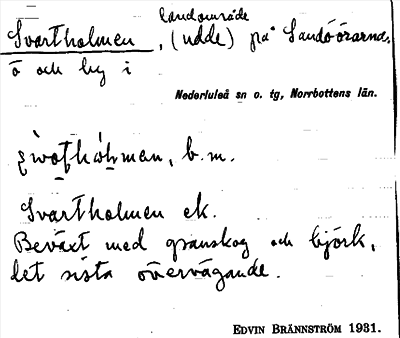 landområde
Svartholmen, (udde) på Sandöörarna,
ö och by i
Nederluleå sn o. tg, Norrbottens län.
b.m.
Svartholmen ek.
Beväxt med granskog och björk,
det sista övervägande.
EDVIN BRÄNNSTRÖM 1931.